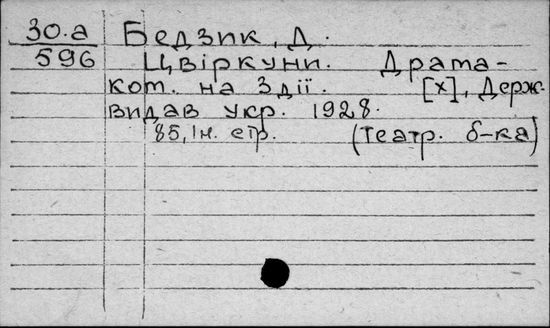 30.а Бедзик, Д.
596 Цвіркуни. Драма-
ком. на 3 дії. [х], Держ.
видав укр. 1928.
85, Ін. стр. (Театр. б-ка)